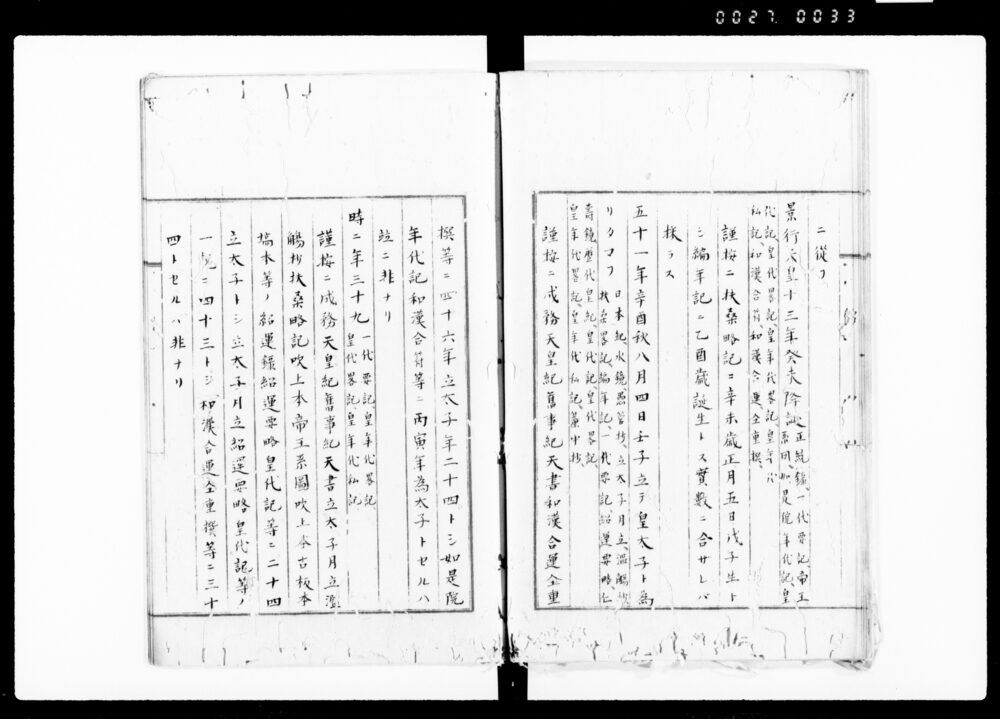 0027 0033
ニ從フ
景行天皇十三年癸未降誕 正統錄、一代要記、帝王
系図、如是院年代記、皇
代記、皇代畧記、皇年代畧記、皇年代
私記、和漢合符、和漢合運全重撰、
謹按ニ扶桑略記ニ辛未歳正月五日戊子生ト
シ編年記ニ乙酉歳誕生トス實數ニ合サレバ
採ラス
五十一年辛酉秋八月四日壬子立テ皇太子ト為
リタマフ 日本紀、水鏡、愚管抄、立太子月立、濫觴抄、
扶桑畧記、編年記、一代要記、紹運要略、仁
壽鏡、歴代皇紀、皇代記、皇代畧記、
皇年代畧記、皇年代私記、簾中抄、
謹按ニ成務天皇紀舊事紀天書和漢合運全重
撰等ニ四十六年立太子年二十四トシ如是院
年代記和漢合符等ニ丙寅年為太子トセルハ
竝ニ非ナリ
時ニ年三十九 一代要記、皇年代畧記
皇代畧記、皇年代私記
謹按ニ成務天皇紀舊事紀天書立太子月立濫
觴抄扶桑略記吹上本帝王系圖吹上本古板本
塙本等ノ紹運錄紹運要略皇代記等ニ二十四
立太子トシ立太子月立紹運要略皇代記等ノ
一説ニ四十三トシ和漢合運全重撰等ニ三十
四トセルハ非ナリ